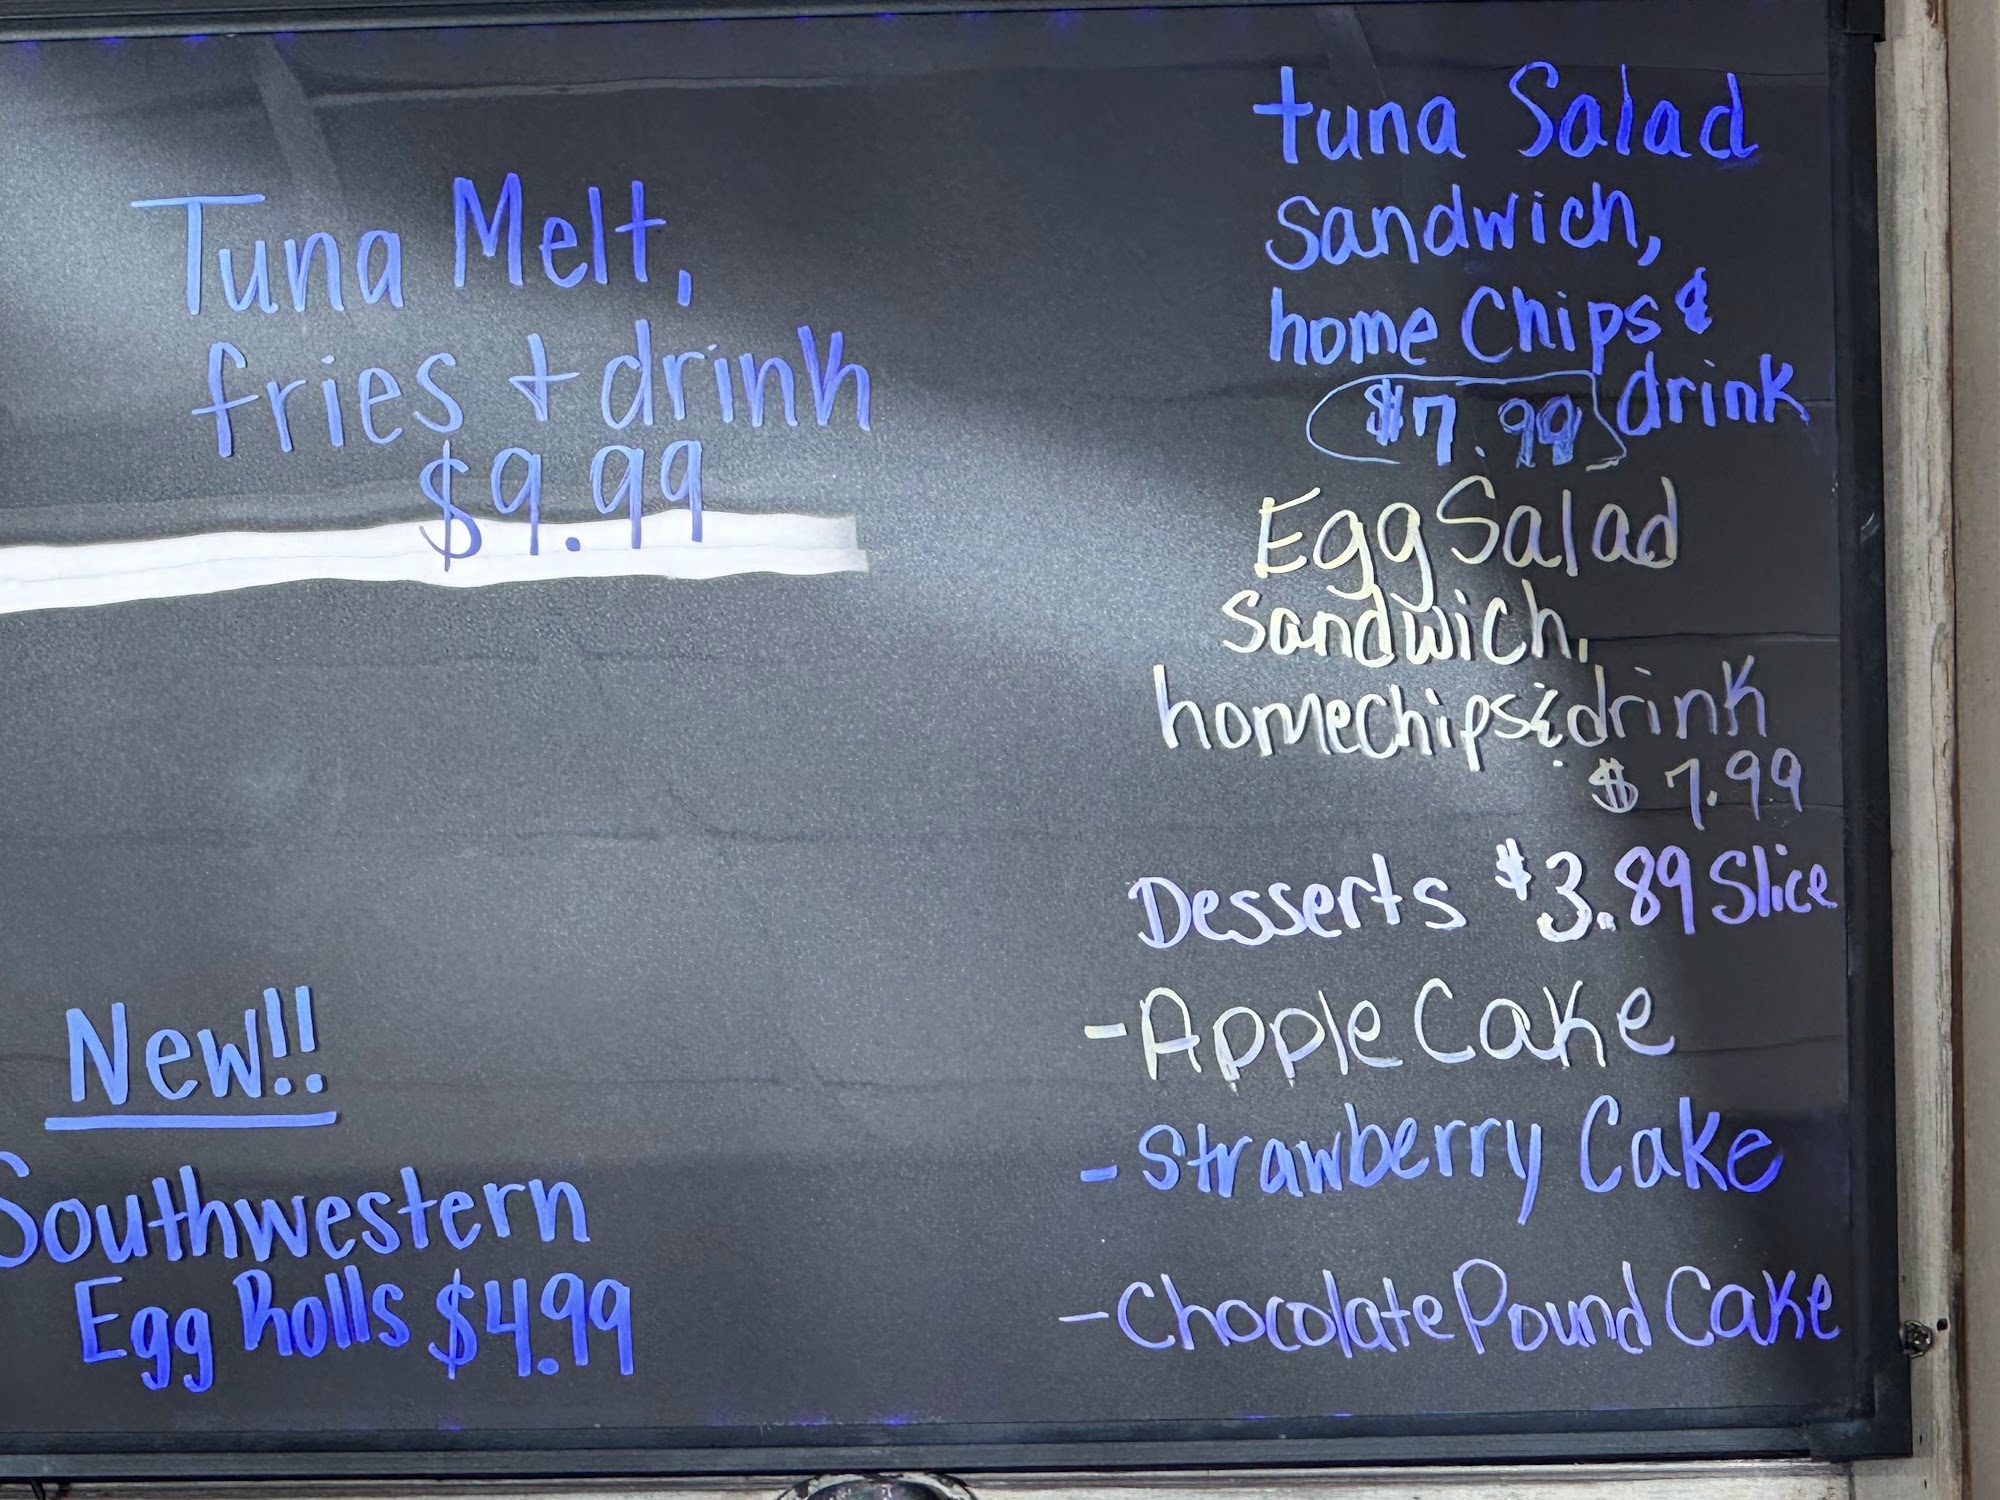 Tuna Melt,
fries + drink
$9.99
New!!
Southwestern
Egg Rolls $4.99
tuna Salad
Sandwich,
home Chips &
drink
$7.99
Egg Salad
Sandwich,
homechips & drink
$7.99
Desserts $3.89 Slice
- Apple Cake
- Strawberry Cake
- Chocolate Pound Cake